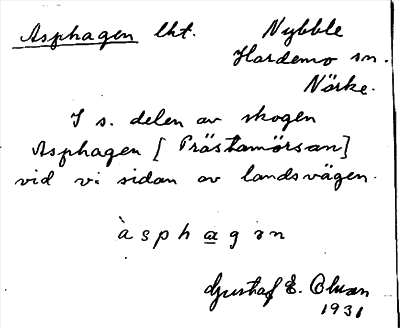 Asphagen lht. Nybble
Hardemo sn.
Närke.
I s. delen av skogen
Asphagen [Prästamörsan]
vid v. sidan av landsvägen.
àsphagən
Gustaf E. Olsson
1931